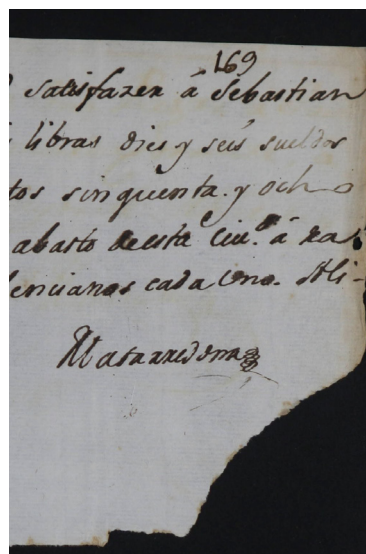 169
satisfazer á Sebastian
libras dies y seis sueldos
tos sinquenta. y ocho
abasto de esta Ciu.d á ra
lencianas cada Uno. Ali-
Matarredona